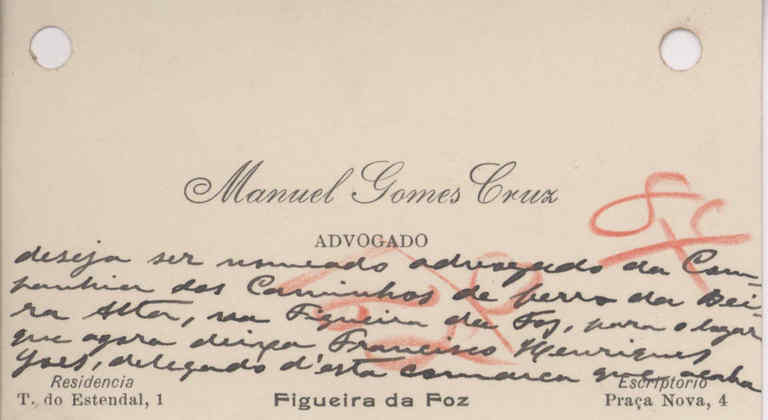 Manuel Gomes Cruz
ADVOGADO
deseja ser nomeado advogado da Com-
panhia dos Caminhos de ferro da Bei-
ra Alta, na Figueira da Foz, para o lugar
que agora deixa Francisco Henriques
delegado d'esta comarca que acaba
Residencia
T. do Estendal, 1
Figueira da Foz
Escriptorio
Praça Nova, 4